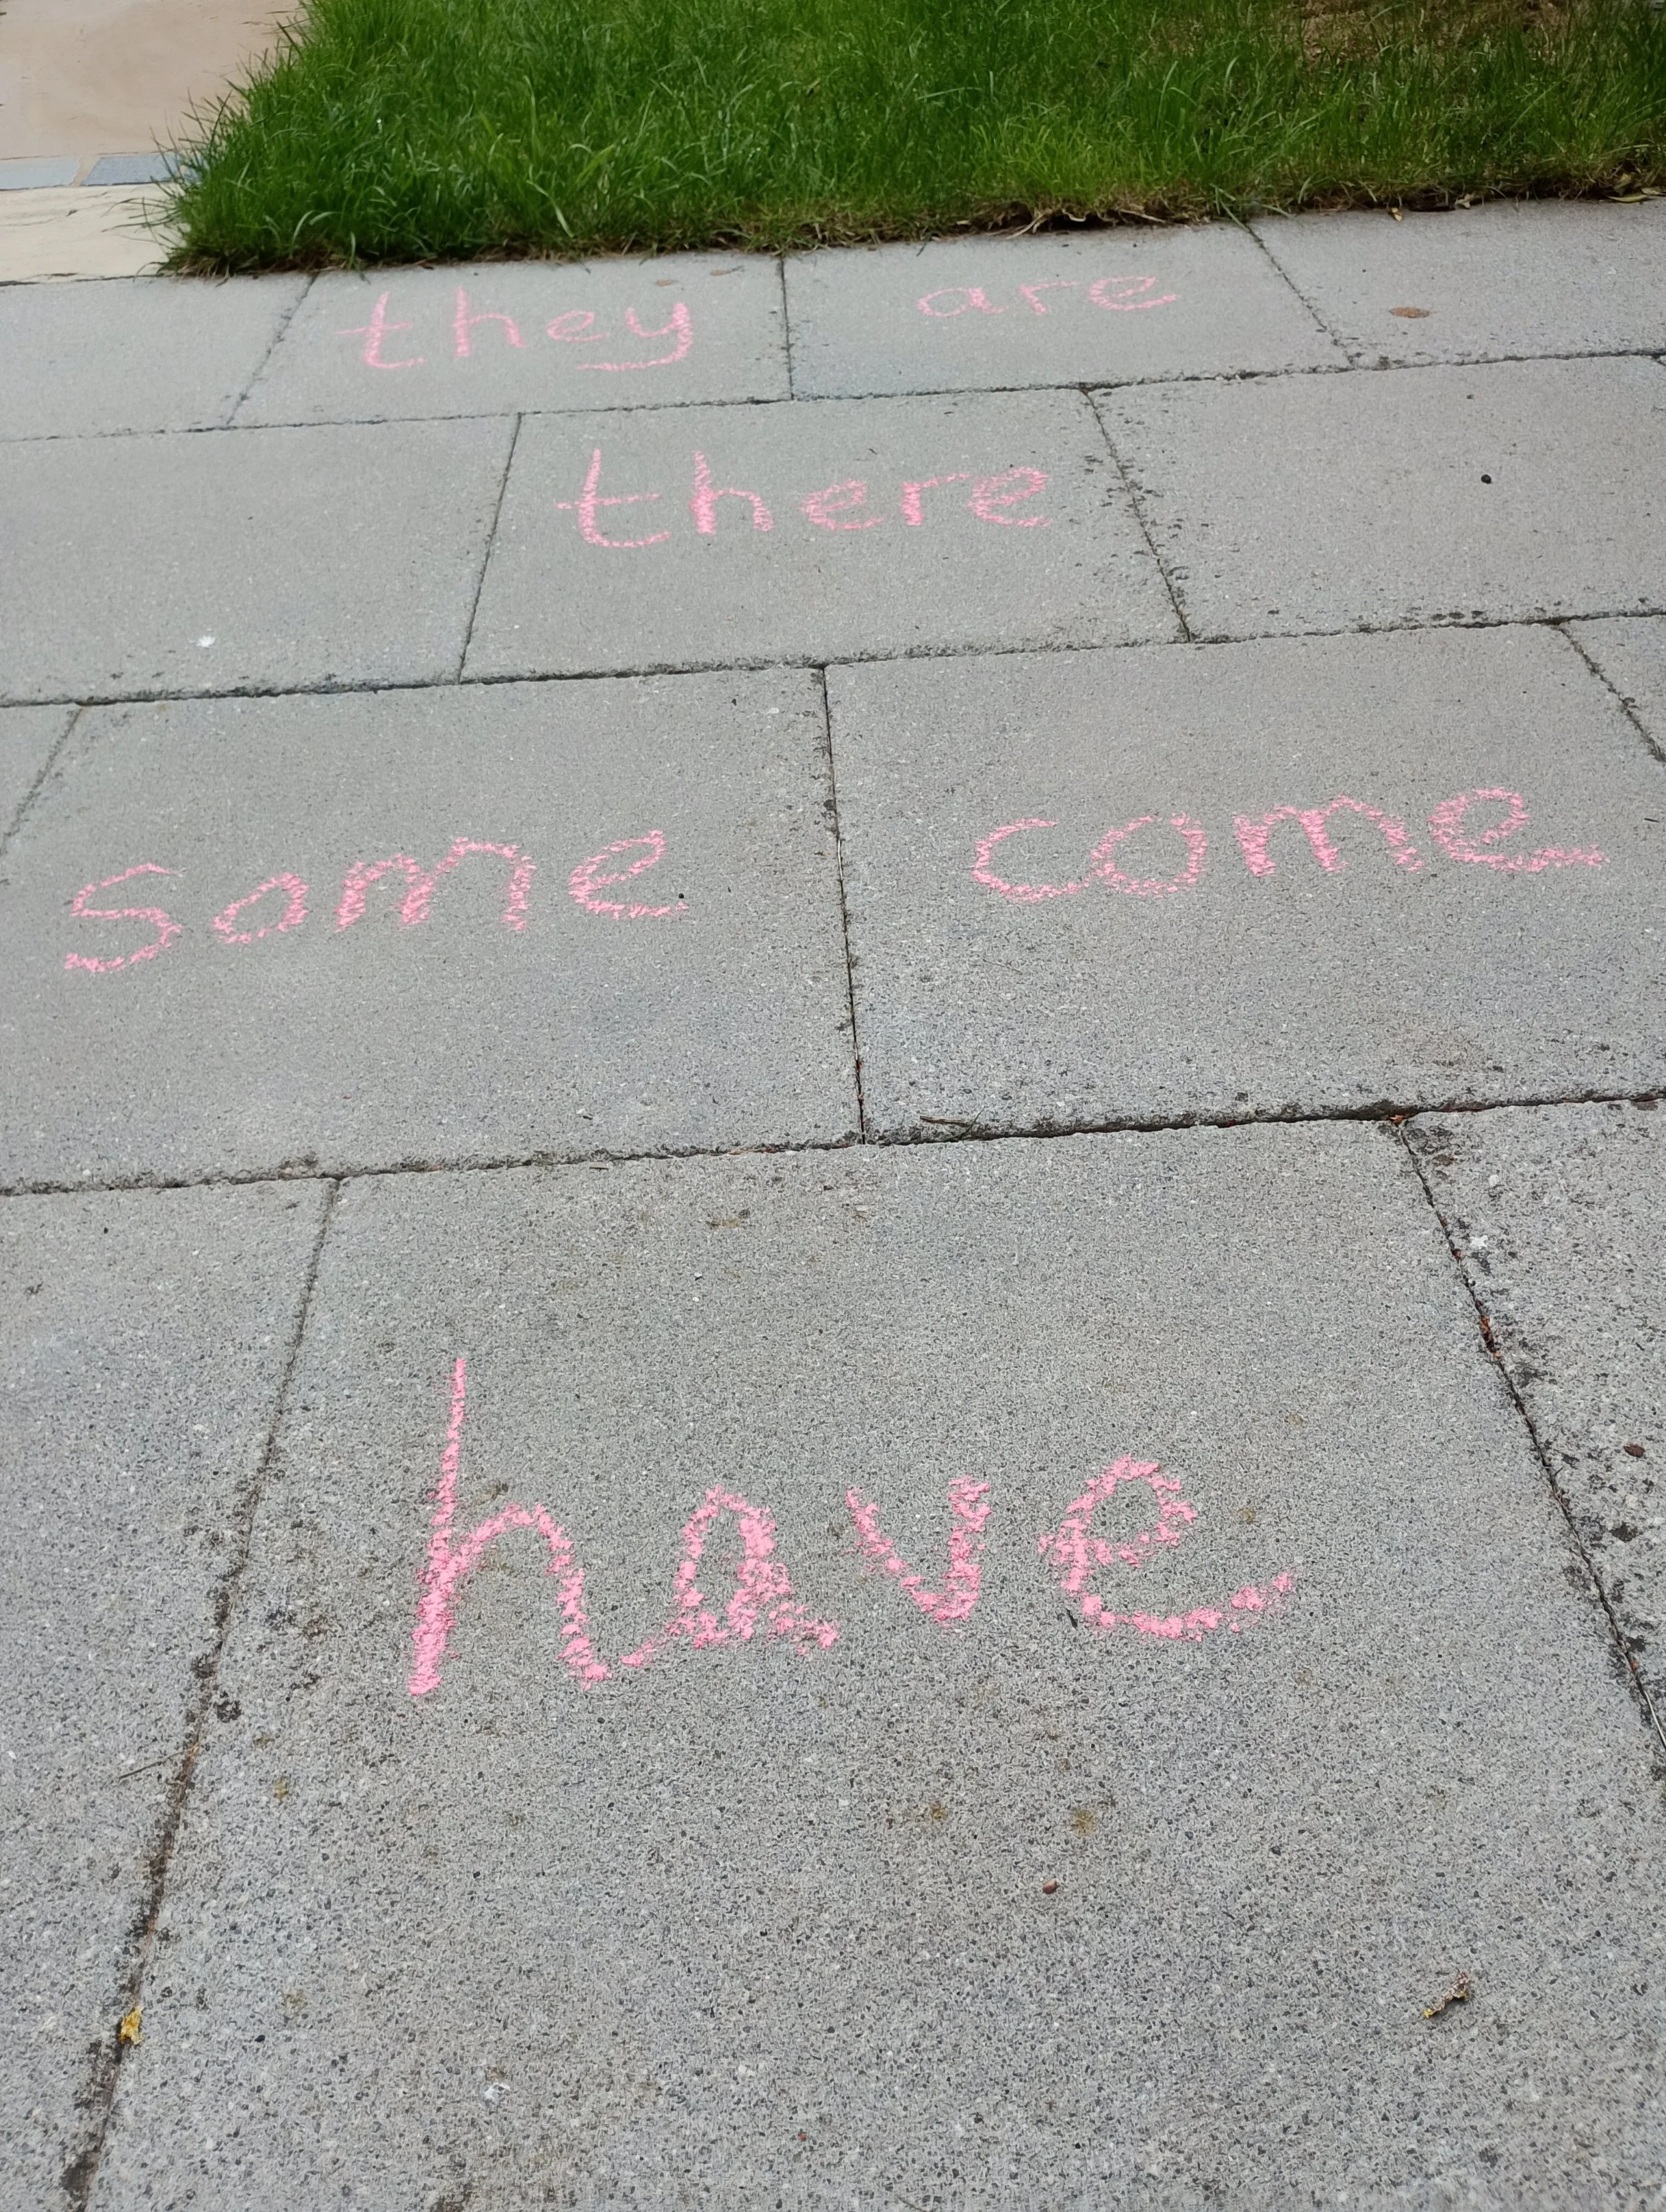 they are
there
some come
have